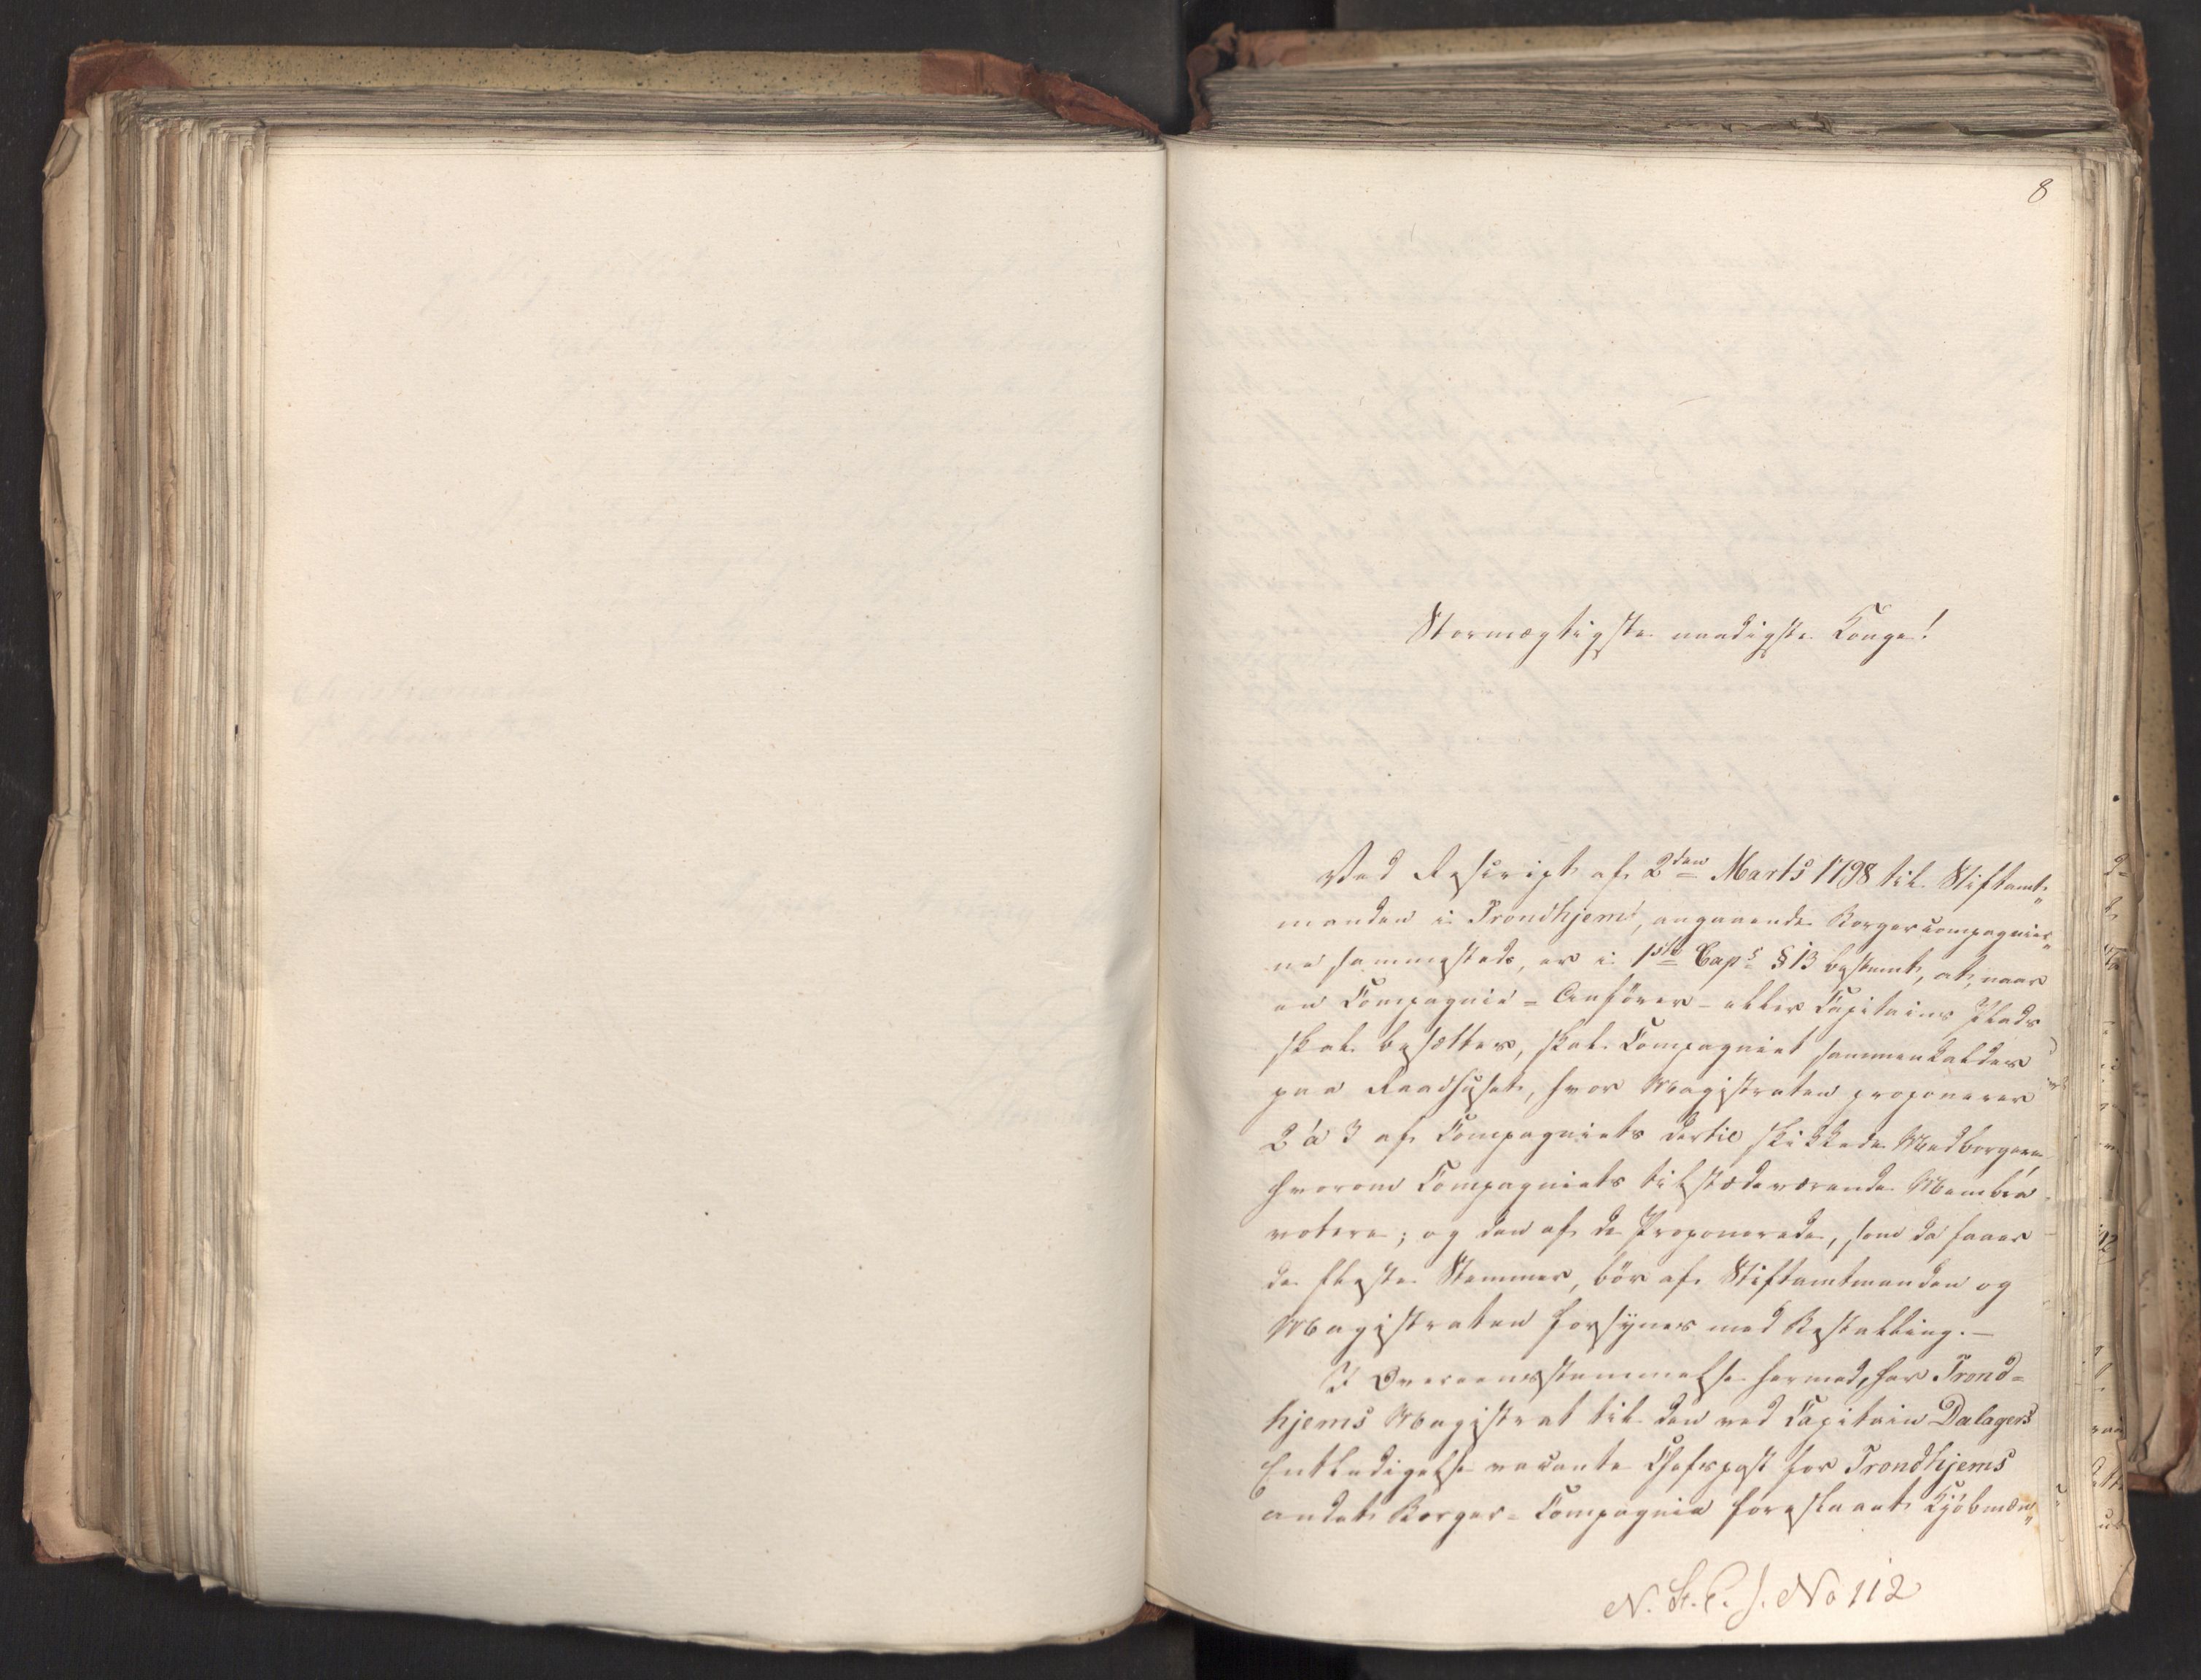 8
Stormægtigste naadigste Konge!
Ved Rescript af 2den Marts 1798 til Stiftamt„
manden i Trondhjem, angaaende Borgercompagnier„
ne sammesteds, er i 1ste Caps § 13 bestemt, at, naar
en Compagnie-Anförer- eller Capitains Plads
skal besættes, skal Compagniet sammenkaldes
paa Raadhuset, hvor Magistraten proponerer
2 á 3 af Compagniets dertil skikkede Medborgere,
hvorom Compagniets tilstædeværende Membra
votere; og den af de Proponerede, som da faaer
de fleste Stemmer, bör af Stiftamtmanden og
Magistraten forsynes med Bestalling.—
I Overeensstemmelse hermed, har Trond=
hjems Magistrat til den ved Capitain Dalagers
Entledigelse vacante Chefspost for Trondhjems
andet Borger-Compagnie foreslaaet Kjöbmæn„
N. St. C. J. No 112